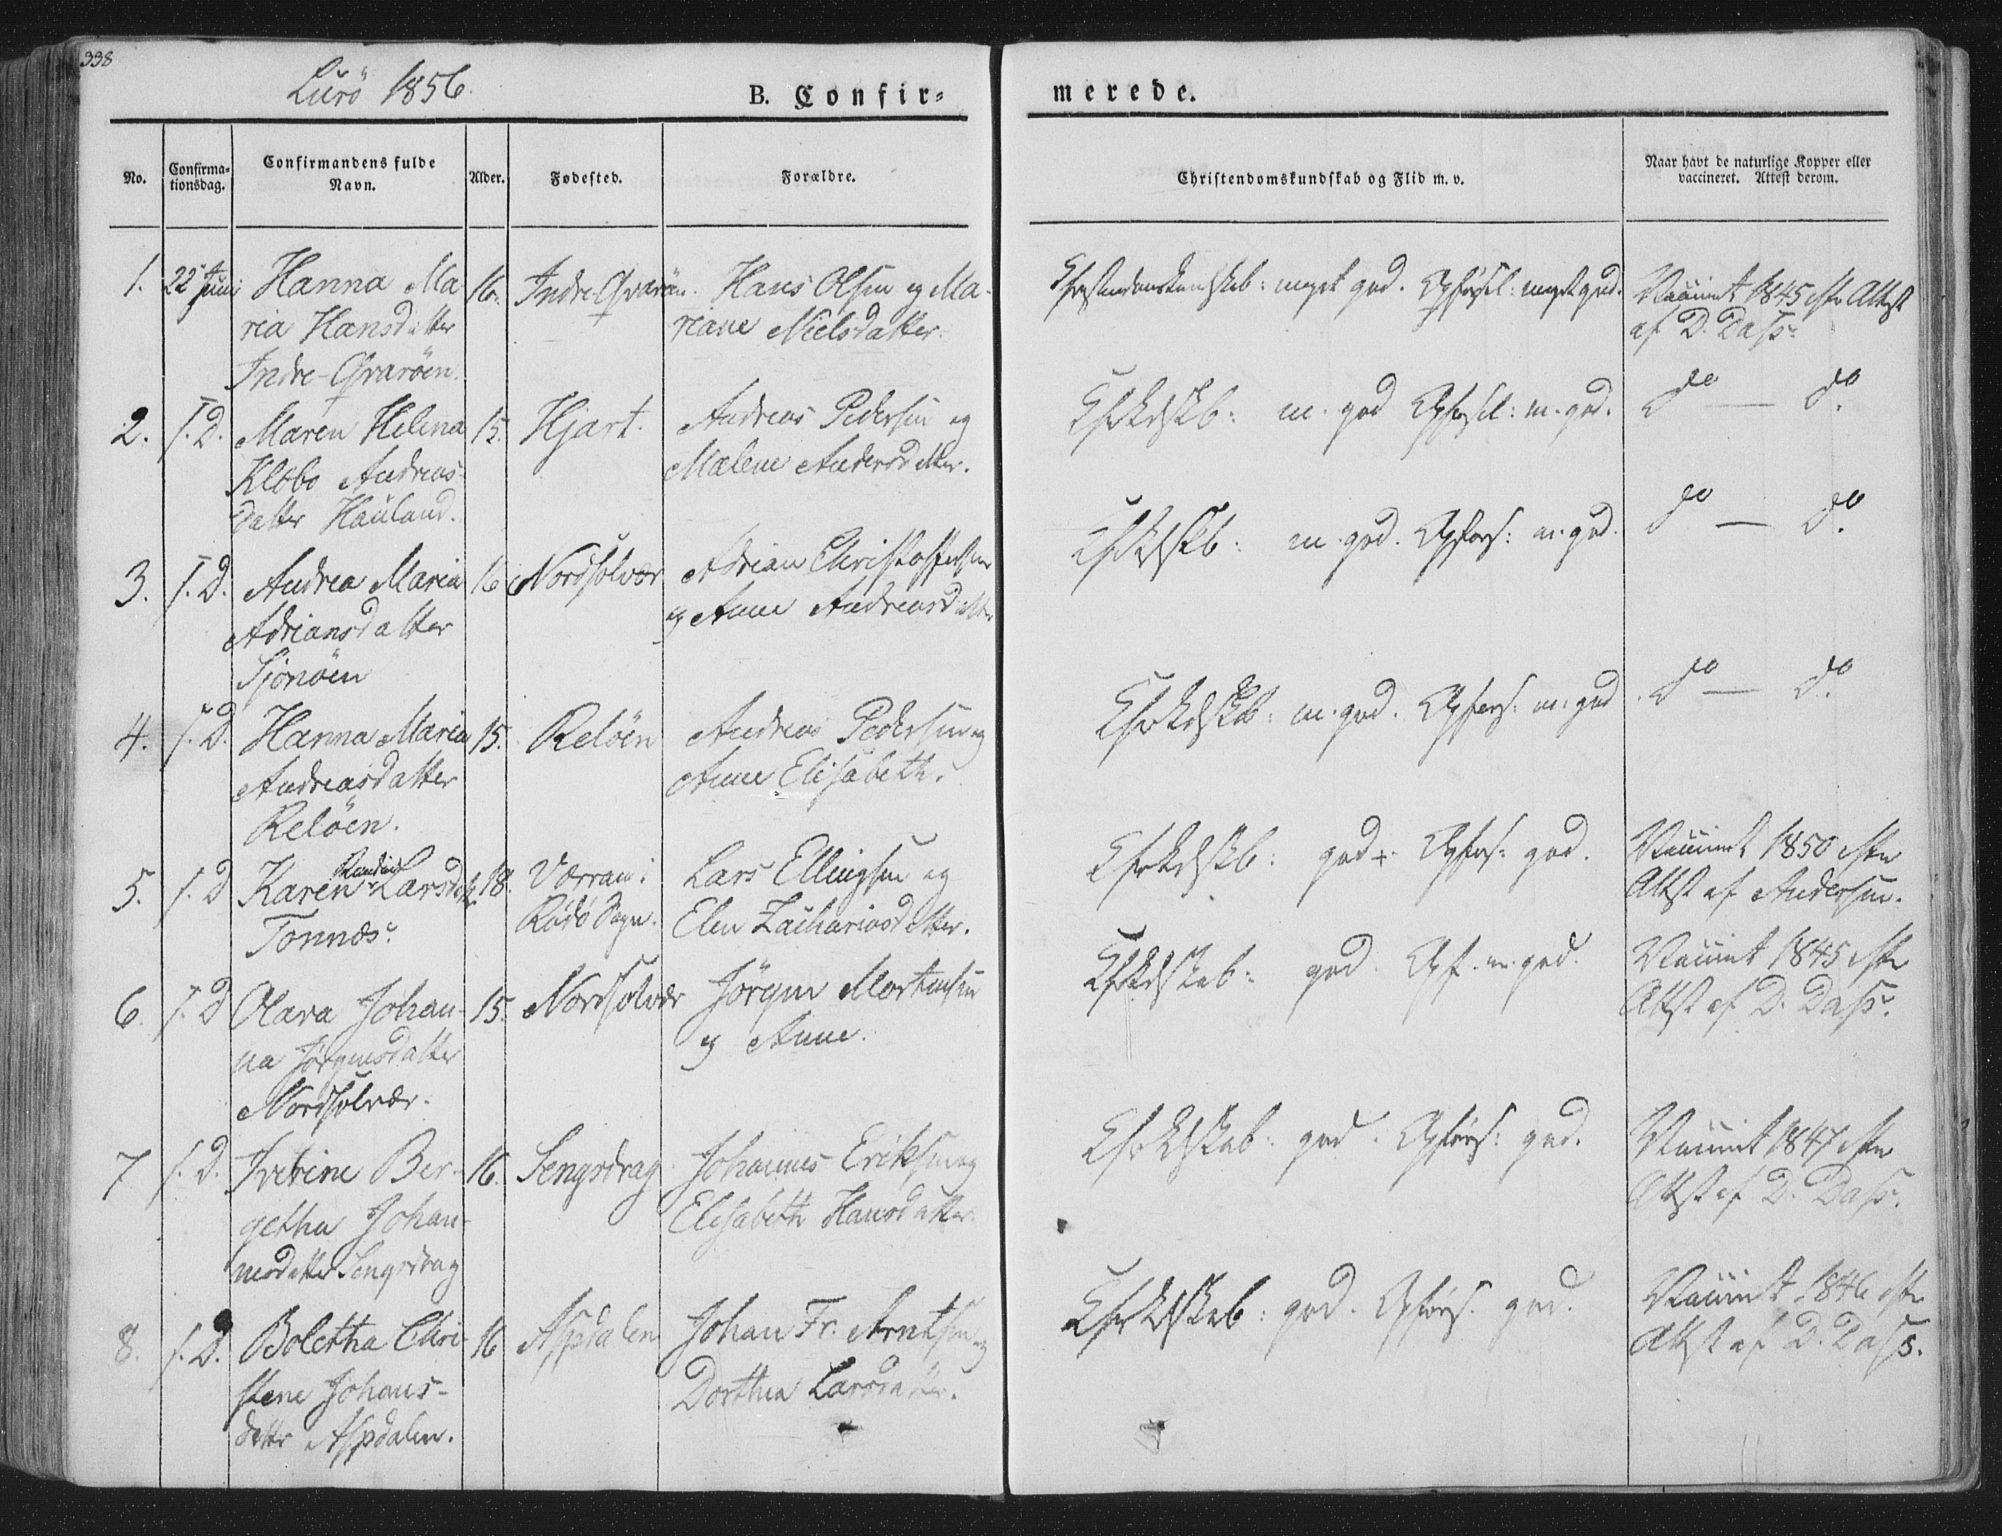 338
Lurö 1856.
B. Confir-
merede.
No.
Confirma-
tionsdag.
Confirmandens fulde
Navn.
Alder.
Fødested.
Forældre.
Christendomskundskab og Flid m. v.
Naar havt de naturlige Kopper eller
vaccineret. Attest derom.
1. 22 Juni Hanna Ma 16. Indre Qvarön. Hans Olsen og Ma-
ria Hansdatter riane Nielsdatter.
Indre-Qvaröen.
Christendomskundskab: meget god. Opförsel: meget god. Vaccinert 1845 efter Attest
af D. Dass.
2. s. D. Maren Helena 15. Hjart. Andreas Pedersen og
Klobo Andreas- Malene Andersdatter.
datter Hauland.
Chrkdskb: m. god Opförsel: m. god. do — do.
3. s. D. Andrea Maria 16 Nordsolvær Adrian Christophersen
Adriansdatter og Anne Andreasdatter
Sjonöen
Chrkdskb: m. god. Opförs: m. god. do — do.
4. s. D. Hanna Maria 15. Relöen Andreas Pedersen og
Andreasdatter Anne Elisabeth.
Relöen.
Chrkdskb: m. god. Opförs: m. god. do — do.
5. s. D Karen Larsdatter 18. Værran i Lars Ellingsen og
Tonnes. Rödö Sogn. Elen Zachariasdatter.
Chrkdskb: god. Opförs: god. Vaccinert 1850 efter
Attest af Andersen.
6. s. D Olava Johan- 15. Nordsolvær Jörgen Mortensen
na Jörgensdatter og Anne.
Nordsolvær.
Chrkdskab: god. Opf. m. god. Vaccinert 1845 efter
Attest af D. Dass.
7 s. D. Ivetrine Ber- 16. Sengsdrag Johannes Eriksen og
getha Johan- Elisabeth Hansdatter.
nesdatter Sengsdrag
Chrkdskab: god. Opförs: god. Vaccinert 1847 efter
Attest af D. Dass.
8. s. D. Boletha Chri 16 Aspdalen Johan Fr. Arntsen og
stene Johans- Dorthea Larsdatter.
datter Aspdalen.
Chrkdskab: god. Opförs. god. Vaccinert 1846 efter
Attest af D. Dass.